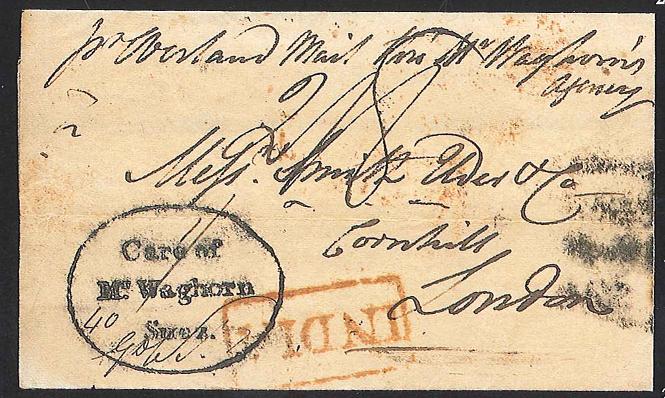 pr Overland Mail Via Mr Waghorn's
Agency
2/8
Messrs. Smith Elder & Co
Cornhill
London
Care of
Mr. Waghorn
Suez.
40
INDIA